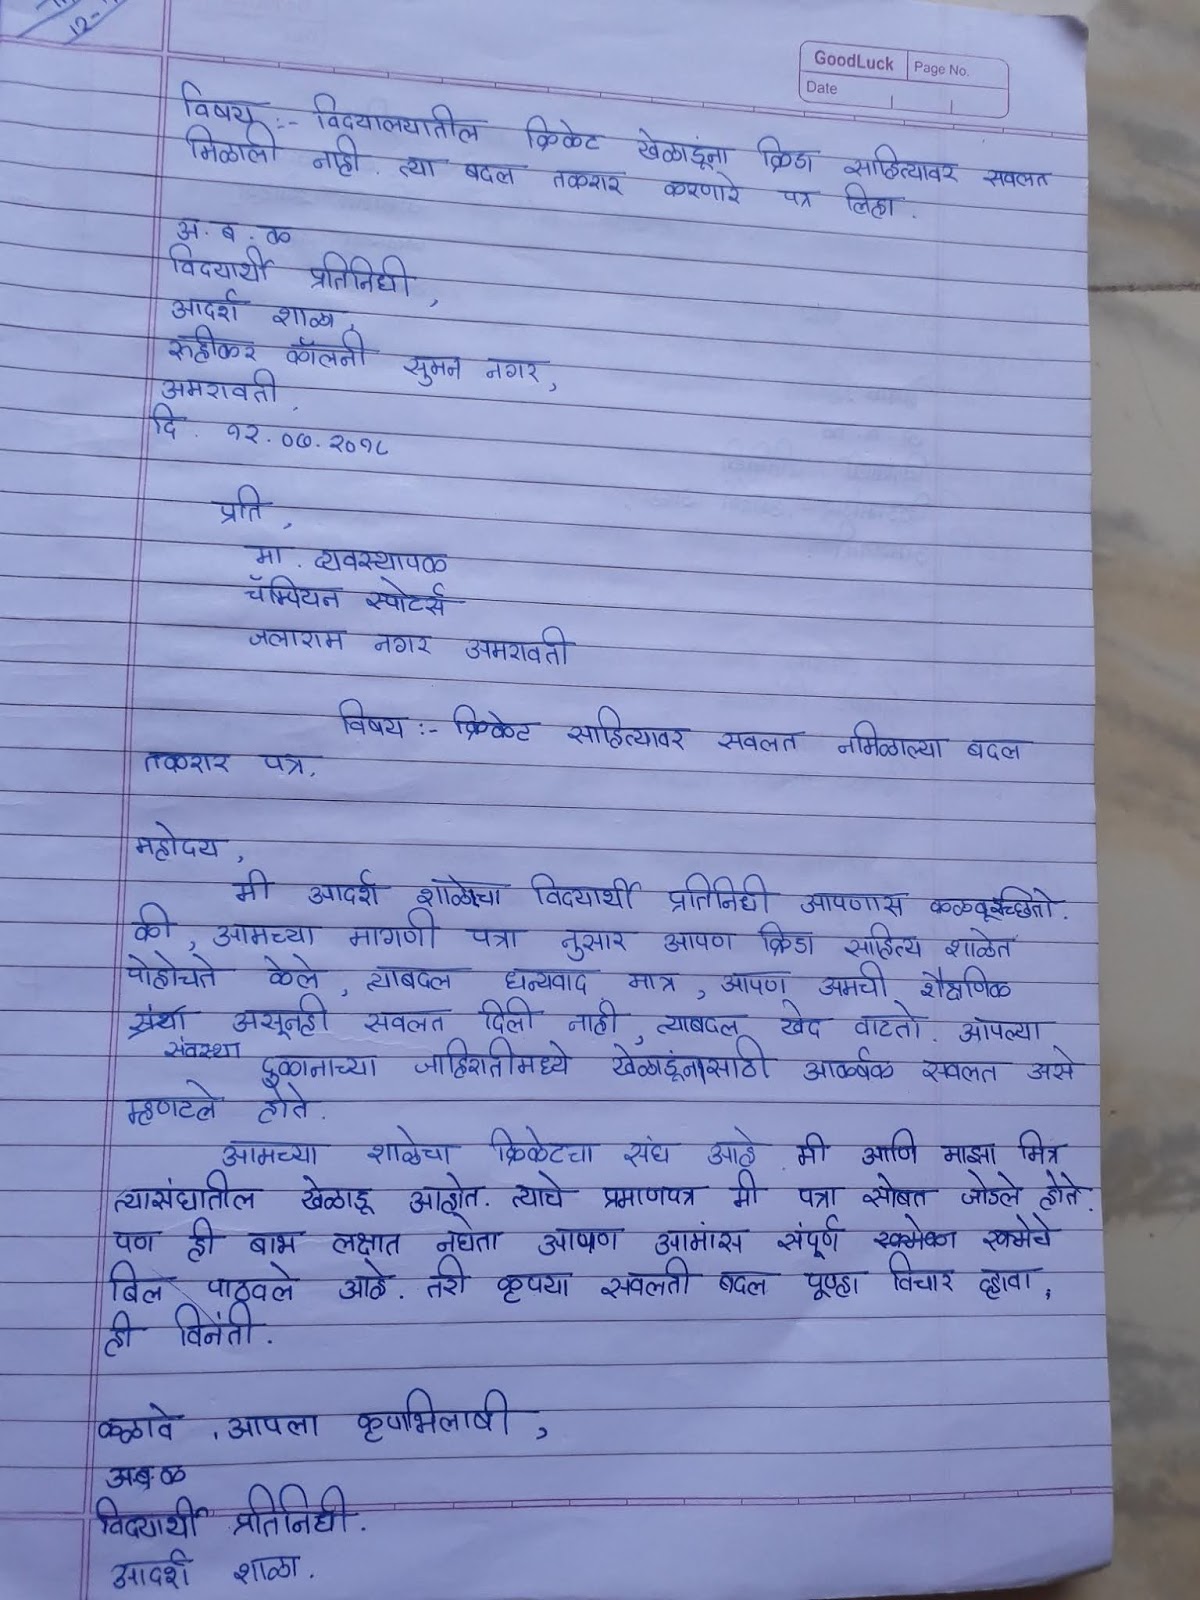 १२-
GoodLuck
Page No.
Date
विषय :- विदयालयातील क्रिकेट खेळाडूंना क्रिडा साहित्यावर सवलत
मिळाली नाही. त्या बदल तकरार करणारे पत्र लिहा.
अ. ब. ळ
विदयार्थी प्रतिनिधी,
आदर्श शाळा,
रुहीकर कॉलनी सुमन नगर,
अमरावती.
दि. १२.०७.२०१८
प्रति,
मा. व्यवस्थापक
चॅम्पियन स्पोटर्स
जलाराम नगर अमरावती
विषय :- क्रिकेट साहित्यावर सवलत नमिळाल्या बदल
तकरार पत्र.
महोदय,
मी आदर्श शाळेचा विदयार्थी प्रतिनिधी आपणास कळवूइच्छितो.
की, आमच्या मागणी पत्रा नुसार आपण क्रिडा साहित्य शाळेत
पोहोचते केले, त्याबदल धन्यवाद मात्र, आपण अमची शैक्षणिक
संस्था असूनही सवलत दिली नाही, त्याबदल खेद वाटतो. आपल्या
संवस्था
दुकानाच्या जाहिरातीमध्ये खेळाडूंनासाठी आकर्षक सवलत असे
म्हणटले होते.
आमच्या शाळेचा क्रिकेटचा संघ आहे. मी आणि माझा मित्र
त्यासंघातील खेळाडू आहोत. त्याचे प्रमाणपत्र मी पत्रा सोबत जोडले होते.
पण ही बाब लक्षात नघेता आपण आमांस संपूर्ण रक्मेचे
बिल पाठवले आहे. तरी कृपया सवलती बदल पूण्हा विचार व्हावा,
ही विनंती.
कळावे, आपला कृपाभिलाषी,
अ.ब.ळ
विदयार्थी प्रतिनिधी.
आदर्श शाळा.